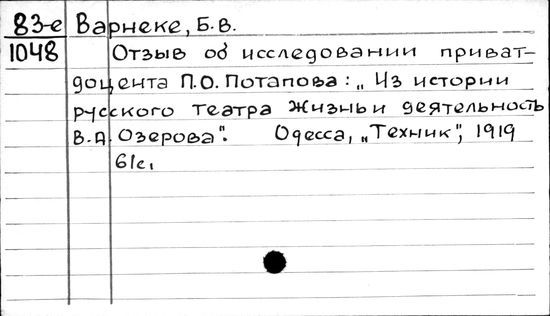 83-е Варнеке, Б.В.
1048 Отзыв об исследовании приват-
доцента П.О. Потапова: „Из истории
русского театра Жизнь и деятельность
В.А. Озерова". Одесса, „Техник", 1919
61с.